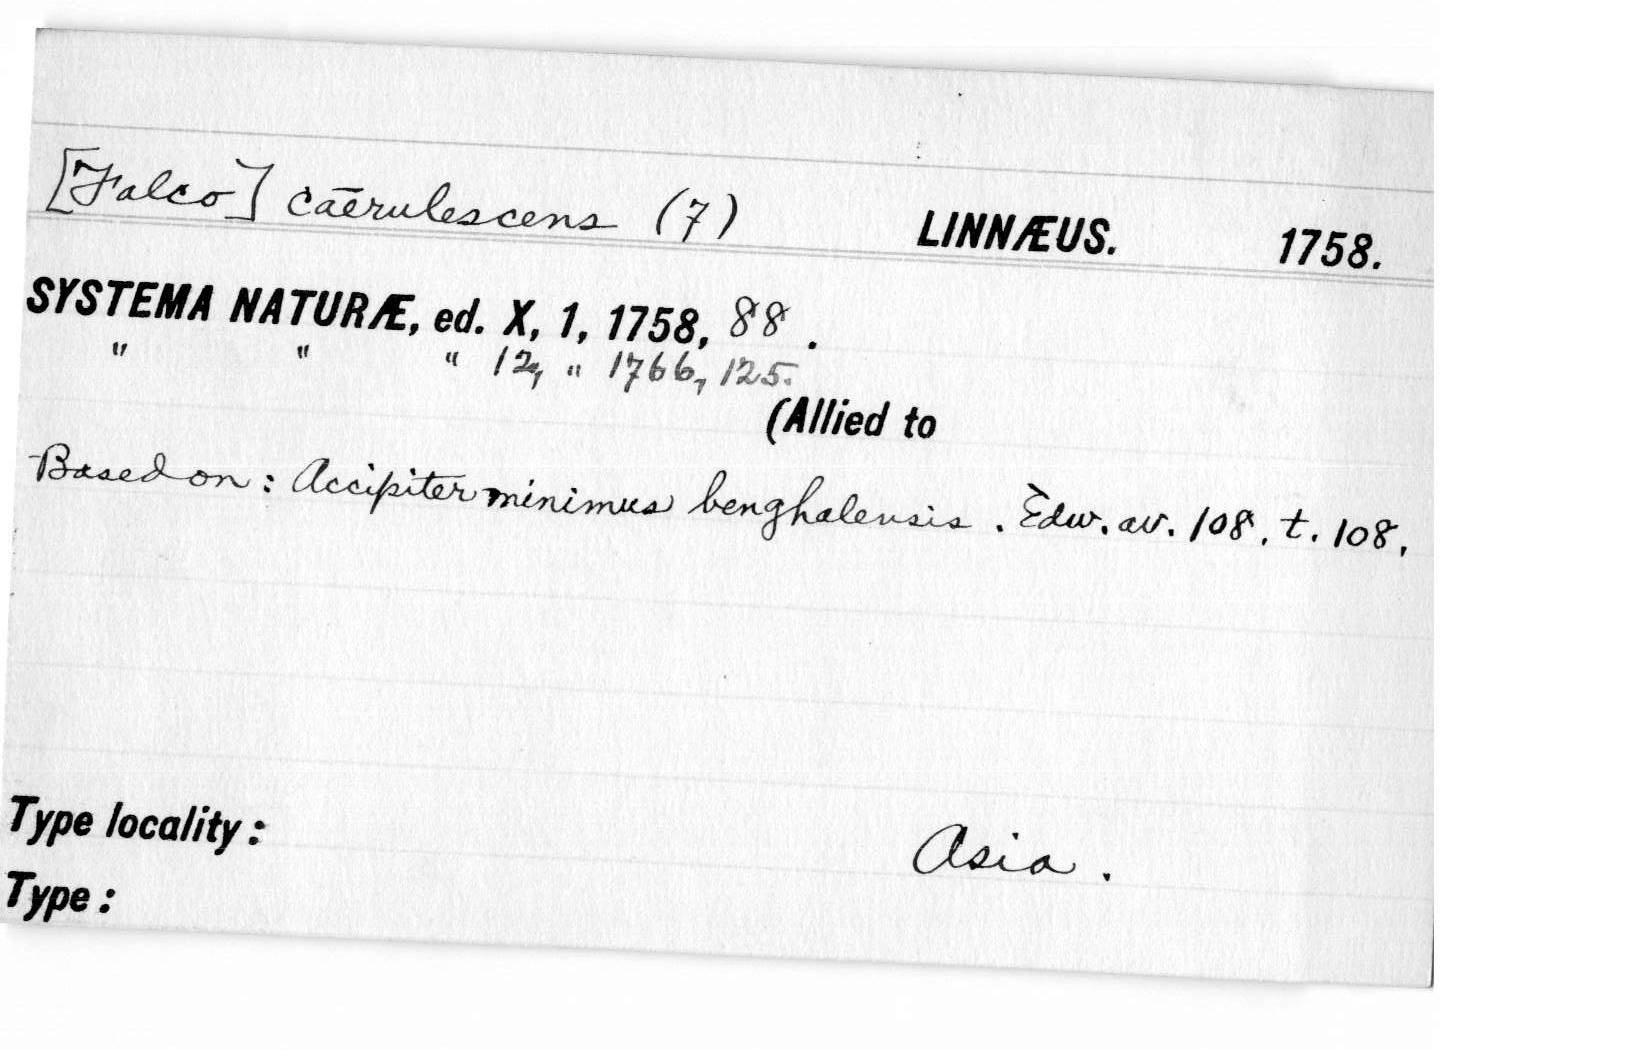 [Falco] cāerulescens (7) LINNÆUS. 1758.
SYSTEMA NATURÆ, ed. X, 1, 1758, 88.
" " " 12, " 1766, 125.
(Allied to
Based on: Accipiter minimus benghalensis. Edw. av. 108. t. 108.
Type locality: Asia.
Type: